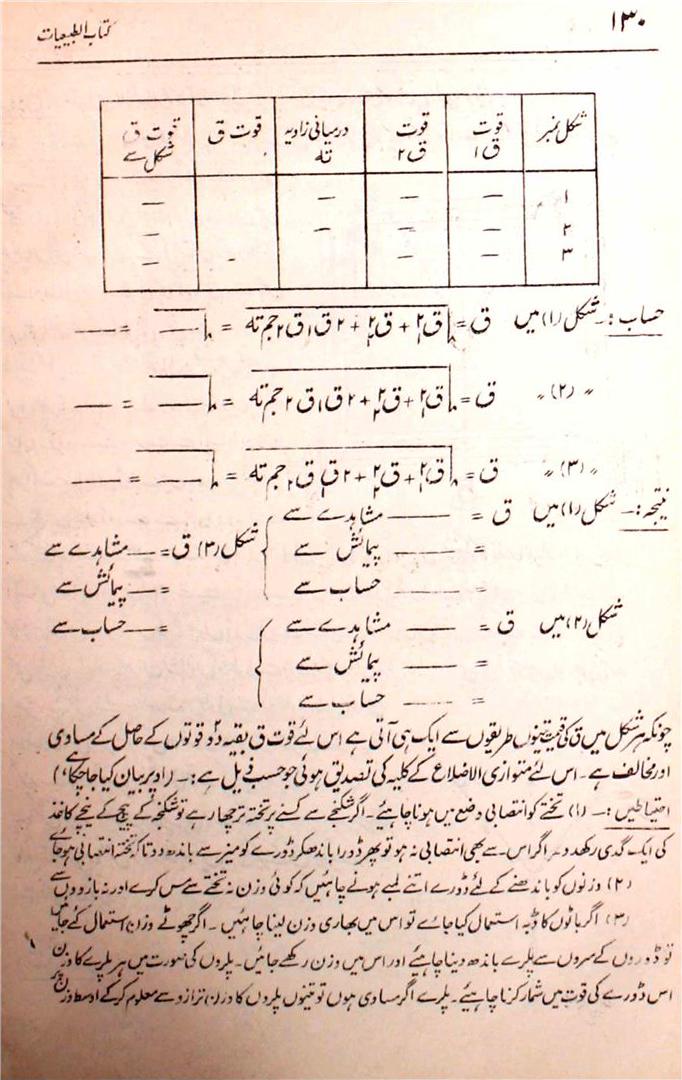 ۱۳۰
کتاب الطبیعیات
شکل نمبر | قوت ق۱ | قوت ق۲ | درمیانی زاویہ تہ | قوت ق | قوت ق شکل سے
۱ | — | — | — | | —
۲ | — | — | — | | —
۳ | — | — | | - | —
حساب :۔ شکل (۱) میں ق = √ق۱² + ق۲² + ۲ ق۱ ق۲ جم تہ = √—— = ——
〃 (۲) 〃 ق = √ق۱² + ق۲² + ۲ ق۱ ق۲ جم تہ = √—— = ——
〃 (۳) 〃 ق = √ق۱² + ق۲² + ۲ ق۱ ق۲ جم تہ = √—— = ——
نتیجہ :۔ شکل (۱) میں ق = —— مشاہدے سے
= —— پیمائش سے
= —— حساب سے
شکل (۳) ق = —— مشاہدے سے
= —— پیمائش سے
= —— حساب سے
شکل (۲) میں ق = —— مشاہدے سے
= —— پیمائش سے
= —— حساب سے
چونکہ ہر شکل میں ق کی قیمت تینوں طریقوں سے ایک ہی آتی ہے اس لئے قوت ق بقیہ دو قوتوں کے حاصل کے مساوی
اور مخالف ہے۔ اس لئے متوازی الاضلاع کے کلیہ کی تصدیق ہوئی جو حسب ذیل ہے :۔ (اوپر بیان کیا جا چکا ہے)
احتیاطیں :۔ (۱) تختے کو انتصابی وضع میں ہونا چاہیئے۔ اگر شکنجے سے کسنے پر تختہ ترچھا رہے تو شکنجے کے پیچ کے نیچے کاغذ
کی ایک گدی رکھدو۔ اگر اس سے بھی انتصابی نہ ہو تو پھر ڈورا باندھکر ڈورے کو میز سے باندھ دو تاکہ تختہ انتصابی ہو جائے
(۲) وزنوں کو باندھنے کے لئے ڈورے اتنے لمبے ہونے چاہئیں کہ کوئی وزن نہ تختے سے مس کرے اور نہ بازووں سے
(۳) اگر باٹوں کا ڈبہ استعمال کیا جائے تو اس میں بھاری وزن لینا چاہئیں۔ اگر چھوٹے وزن استعمال کئے جائیں
تو ڈوروں کے سروں سے پلڑے باندھ دینا چاہیئے اور اس میں وزن رکھے جائیں۔ پلڑوں کی صورت میں ہر پلڑے کا وزن
اس ڈورے کی قوت میں شمار کرنا چاہیئے۔ پلڑے اگر مساوی ہوں تو تینوں پلڑوں کا وزن ترازو سے معلوم کر کے اوسط وزن